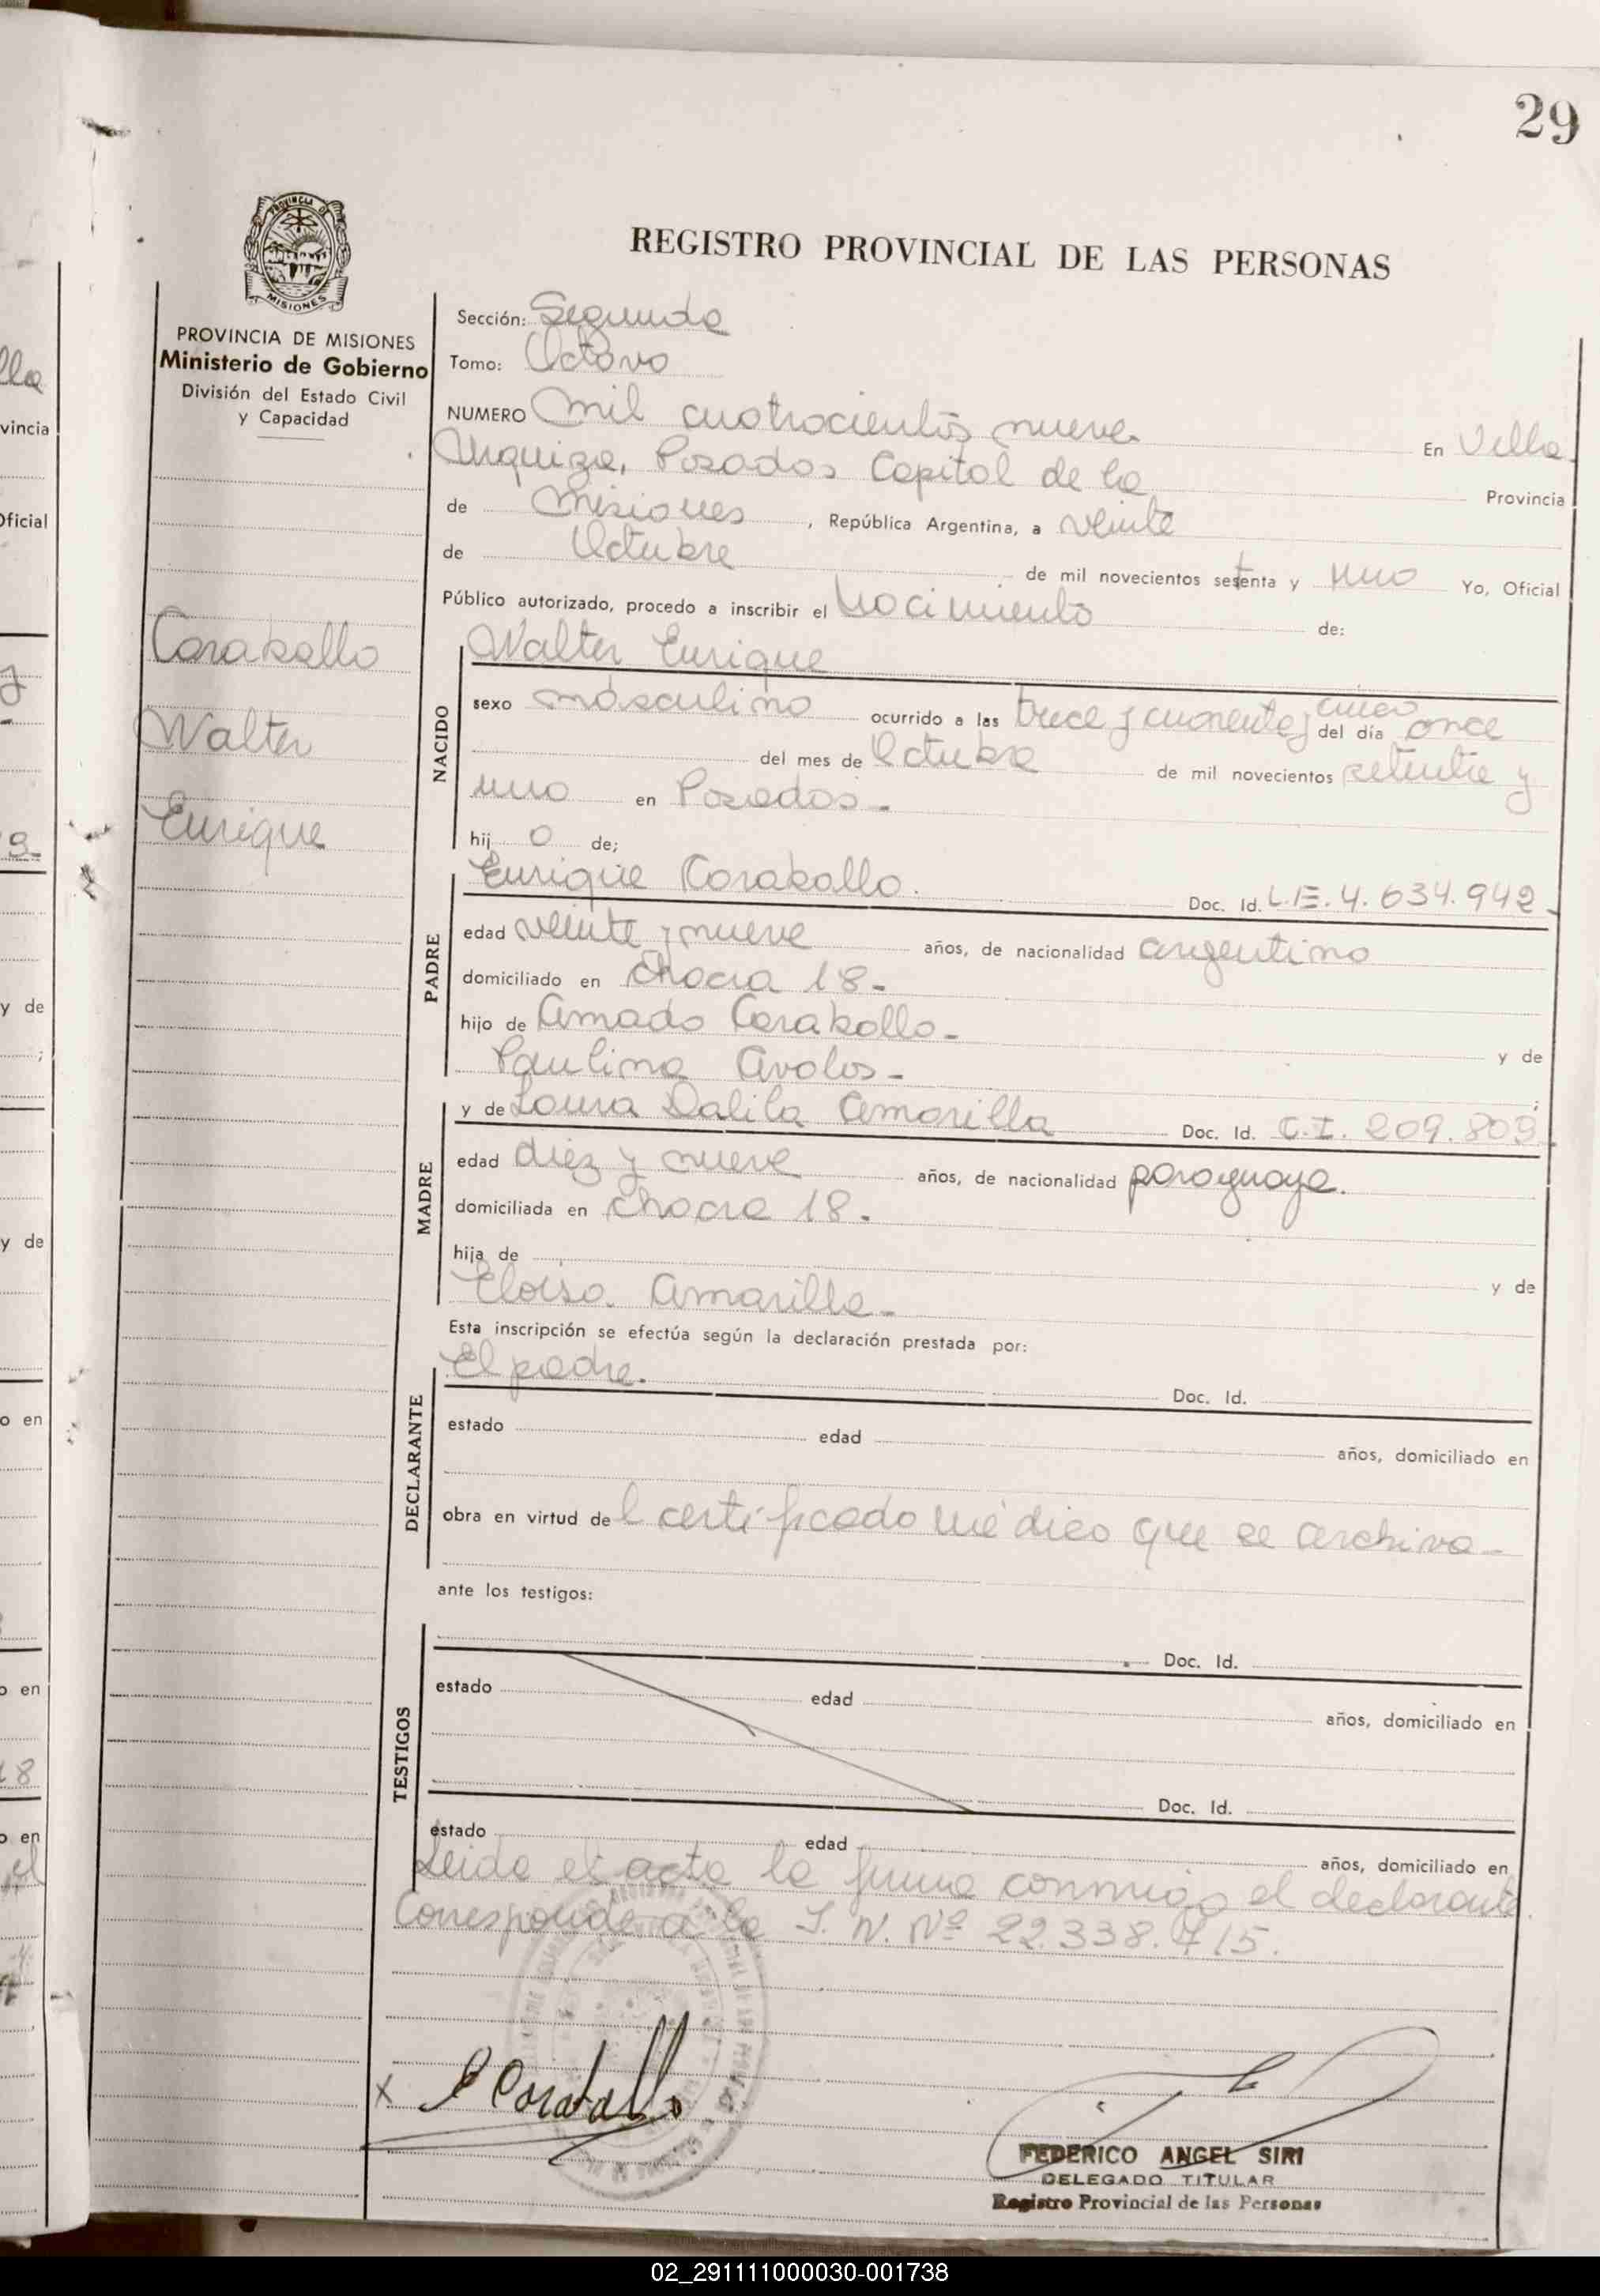 29
PROVINCIA DE
MISIONES
REGISTRO PROVINCIAL DE LAS PERSONAS
PROVINCIA DE MISIONES
Ministerio de Gobierno
División del Estado Civil
y Capacidad
Caraballo
Walter
Enrique
Sección: Segunda
Tomo: Octavo
NUMERO Mil cuatrocientos nueve. En Villa
Urquiza, Posadas Capital de la Provincia
de Misiones, República Argentina, a veinte
de Octubre de mil novecientos setenta y uno Yo, Oficial
Público autorizado, procedo a inscribir el Nacimiento de:
NACIDO
Walter Enrique
sexo masculino ocurrido a las trece y cuarenta y cinco del día once
del mes de Octubre de mil novecientos setenta y
uno en Posadas.-
hij o de;
PADRE
Enrique Caraballo. Doc. Id. L.E. 4.634.942-
edad veinte y nueve años, de nacionalidad argentino
domiciliado en chacra 18.-
hijo de Amado Caraballo.- y de
Paulina Avalos.- ;
MADRE
y de Laura Dalila Amarilla Doc. Id. C.I. 209.803.
edad diez y nueve años, de nacionalidad paraguaya.
domiciliada en chacra 18.
hija de y de
Eloisa Amarilla.-
Esta inscripción se efectúa según la declaración prestada por:
DECLARANTE
El padre. Doc. Id.
estado edad años, domiciliado en
obra en virtud de l certificado médico que se archiva-
ante los testigos:
TESTIGOS
Doc. Id.
estado edad años, domiciliado en
Doc. Id.
estado edad años, domiciliado en
Leida el acta la firma conmigo el declarante.
Corresponde a la I. N. Nº 22.338.715.
X E Caraballo
FEDERICO ANGEL SIRI
DELEGADO TITULAR
Registro Provincial de las Personas
02_291111000030-001738